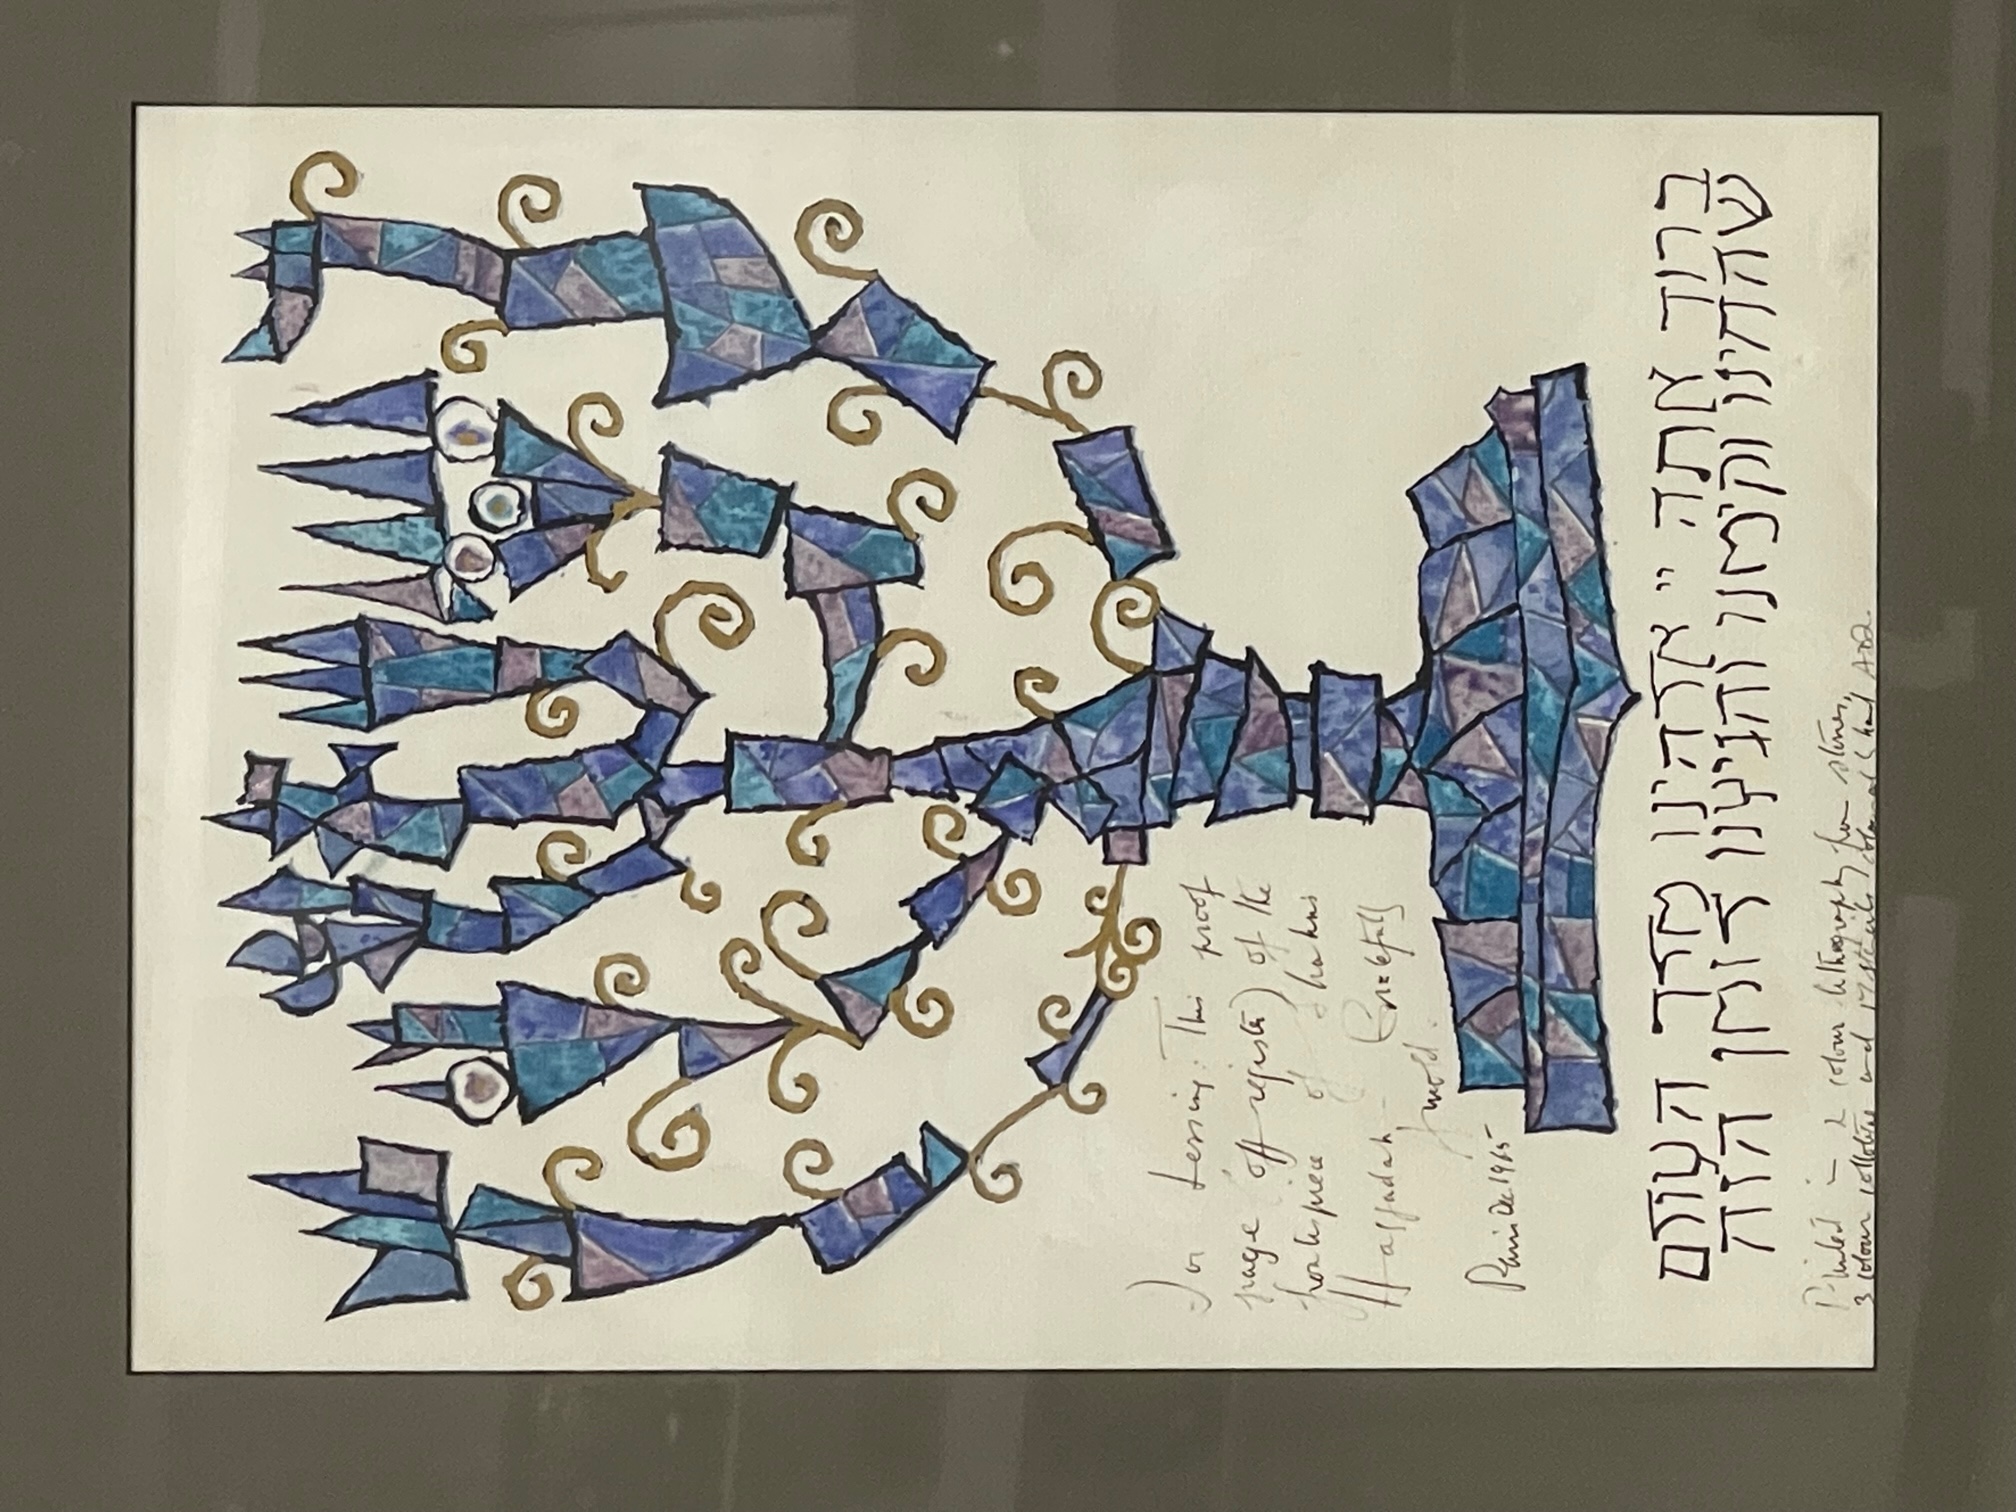 For Lessing: This proof
page (off-register) of the
frontispiece of Shahns
Haggadah—
Paris Dec 1965
ברוך אתה יי אלהינו מלך העולם
שהחינו וקימנו והגיענו לזמן הזה
Printed in 2 colour lithography from stones,
3 colour collotype and 17 stencils, coloured by hand.